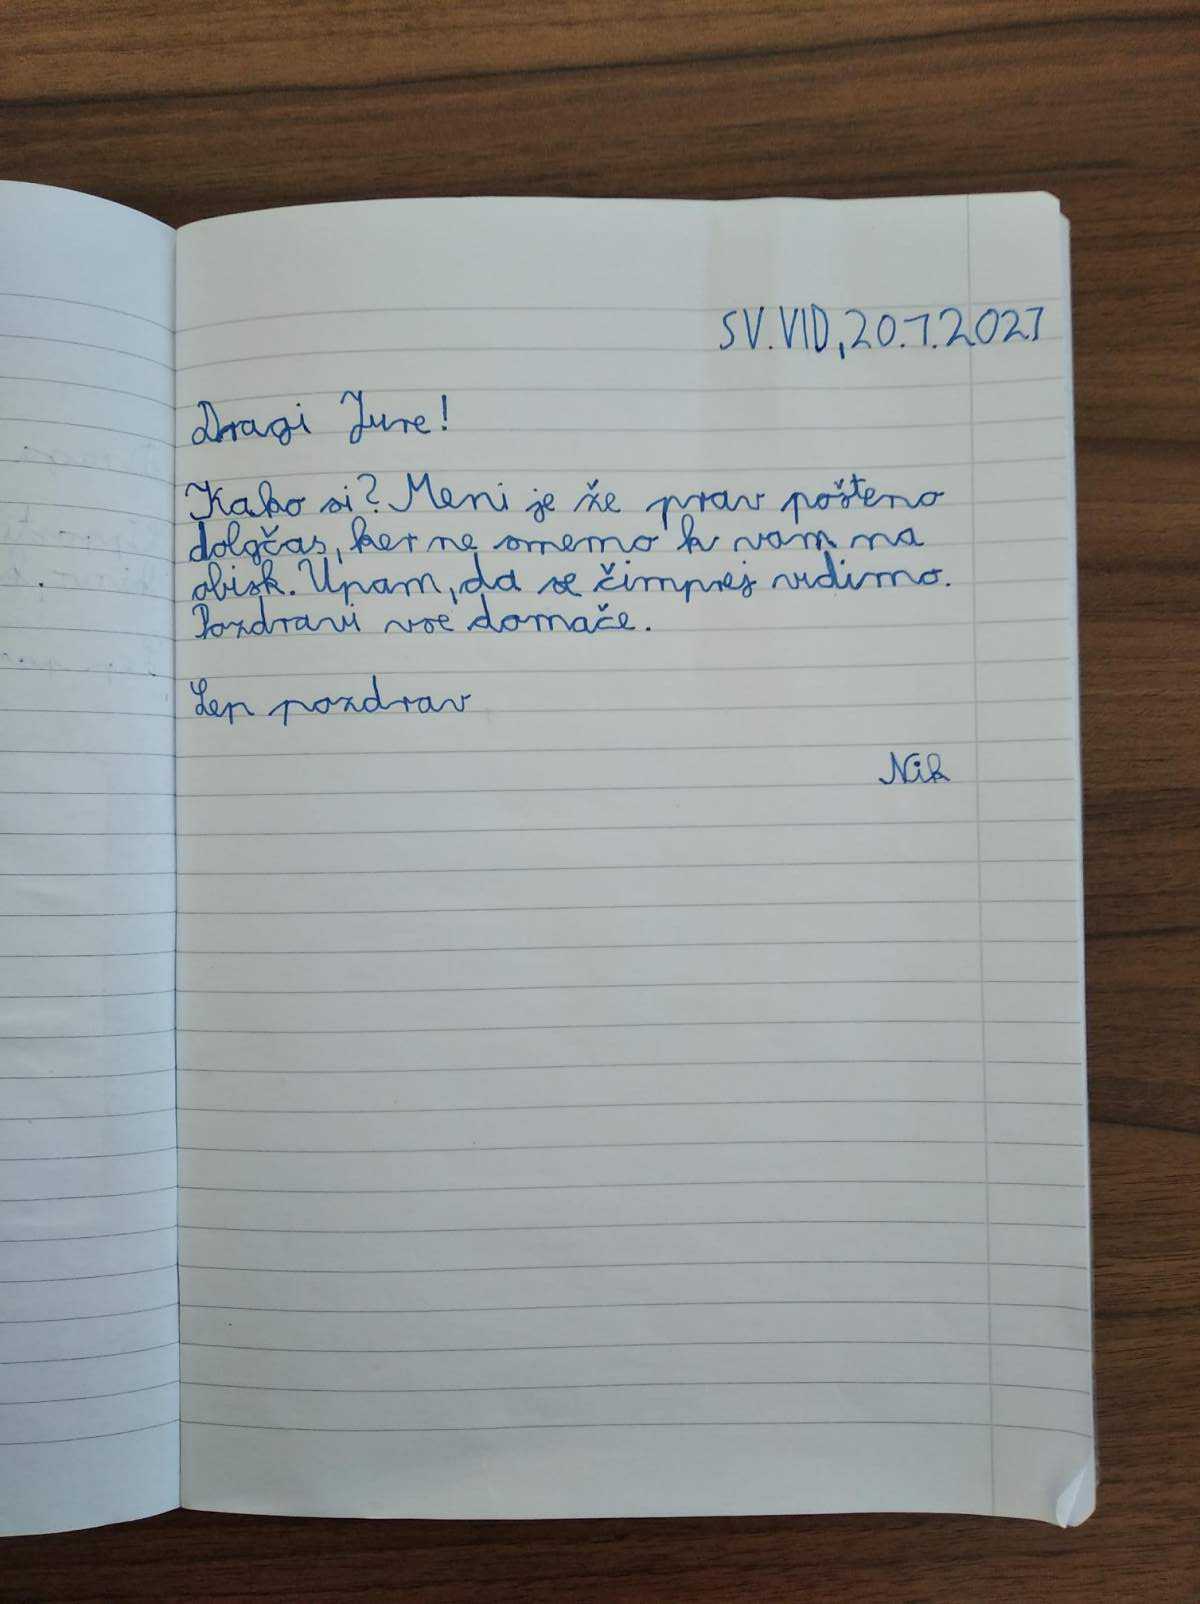 SV. VID, 20.1.2021
Dragi Jure!
Kako si? Meni je že prav pošteno
dolgčas, ker ne smemo k vam na
obisk. Upam, da se čimprej vidimo.
Pozdravi vse domače.
Lep pozdrav
Nik